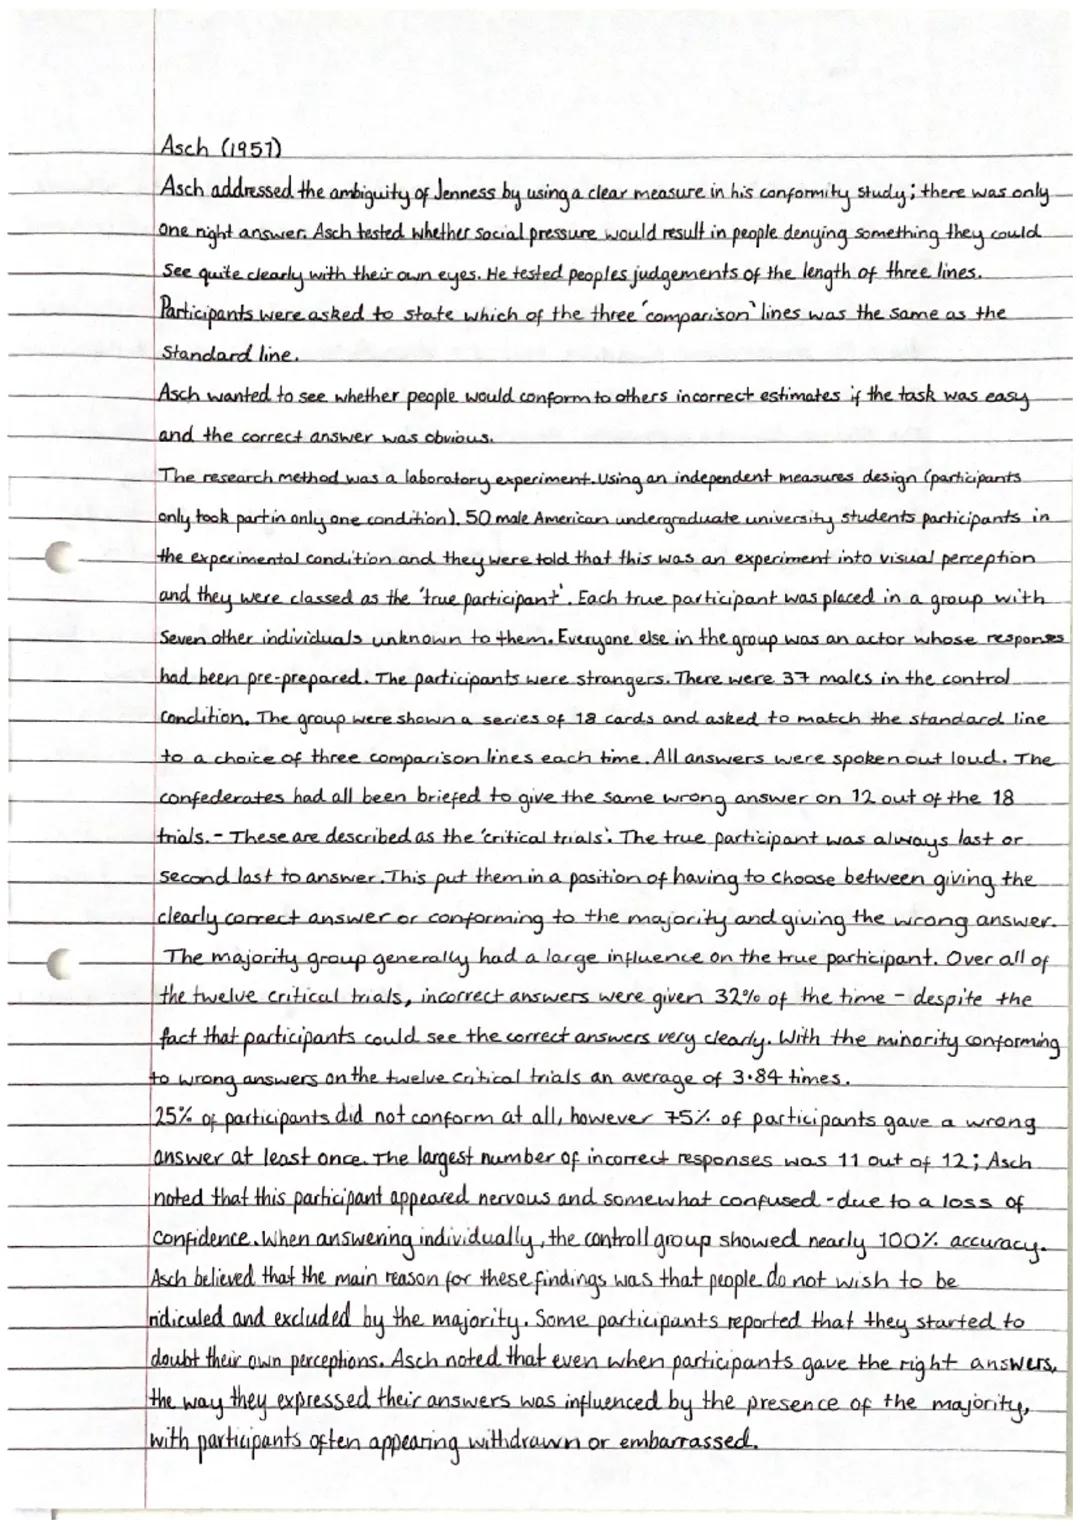 Asch (1951)
Asch addressed the ambiguity of Jenness by using a clear measure in his conformity study; there was only
one right answer. Asch tested whether social pressure would result in people denying something they could
see quite clearly with their own eyes. He tested peoples judgements of the length of three lines.
Participants were asked to state which of the three 'comparison' lines was the same as the
standard line.
Asch wanted to see whether people would conform to others incorrect estimates if the task was easy
and the correct answer was obvious.
The research method was a laboratory experiment. Using an independent measures design (participants
only took part in only one condition). 50 male American undergraduate university students participants in
the experimental condition and they were told that this was an experiment into visual perception
and they were classed as the 'true participant'. Each true participant was placed in a group with
seven other individuals unknown to them. Everyone else in the group was an actor whose responses
had been pre-prepared. The participants were strangers. There were 37 males in the control
condition. The group were shown a series of 18 cards and asked to match the standard line
to a choice of three comparison lines each time. All answers were spoken out loud. The
confederates had all been briefed to give the same wrong answer on 12 out of the 18
trials. - These are described as the 'critical trials'. The true participant was always last or
second last to answer. This put them in a position of having to choose between giving the
clearly correct answer or conforming to the majority and giving the wrong answer.
The majority group generally had a large influence on the true participant. Over all of
the twelve critical trials, incorrect answers were given 32% of the time - despite the
fact that participants could see the correct answers very clearly. With the minority conforming
to wrong answers on the twelve critical trials an average of 3.84 times.
25% of participants did not conform at all, however 75% of participants gave a wrong
answer at least once. The largest number of incorrect responses was 11 out of 12; Asch
noted that this participant appeared nervous and somewhat confused - due to a loss of
confidence. When answering individually, the controll group showed nearly 100% accuracy.
Asch believed that the main reason for these findings was that people do not wish to be
ridiculed and excluded by the majority. Some participants reported that they started to
doubt their own perceptions. Asch noted that even when participants gave the right answers,
the way they expressed their answers was influenced by the presence of the majority,
with participants often appearing withdrawn or embarrassed.